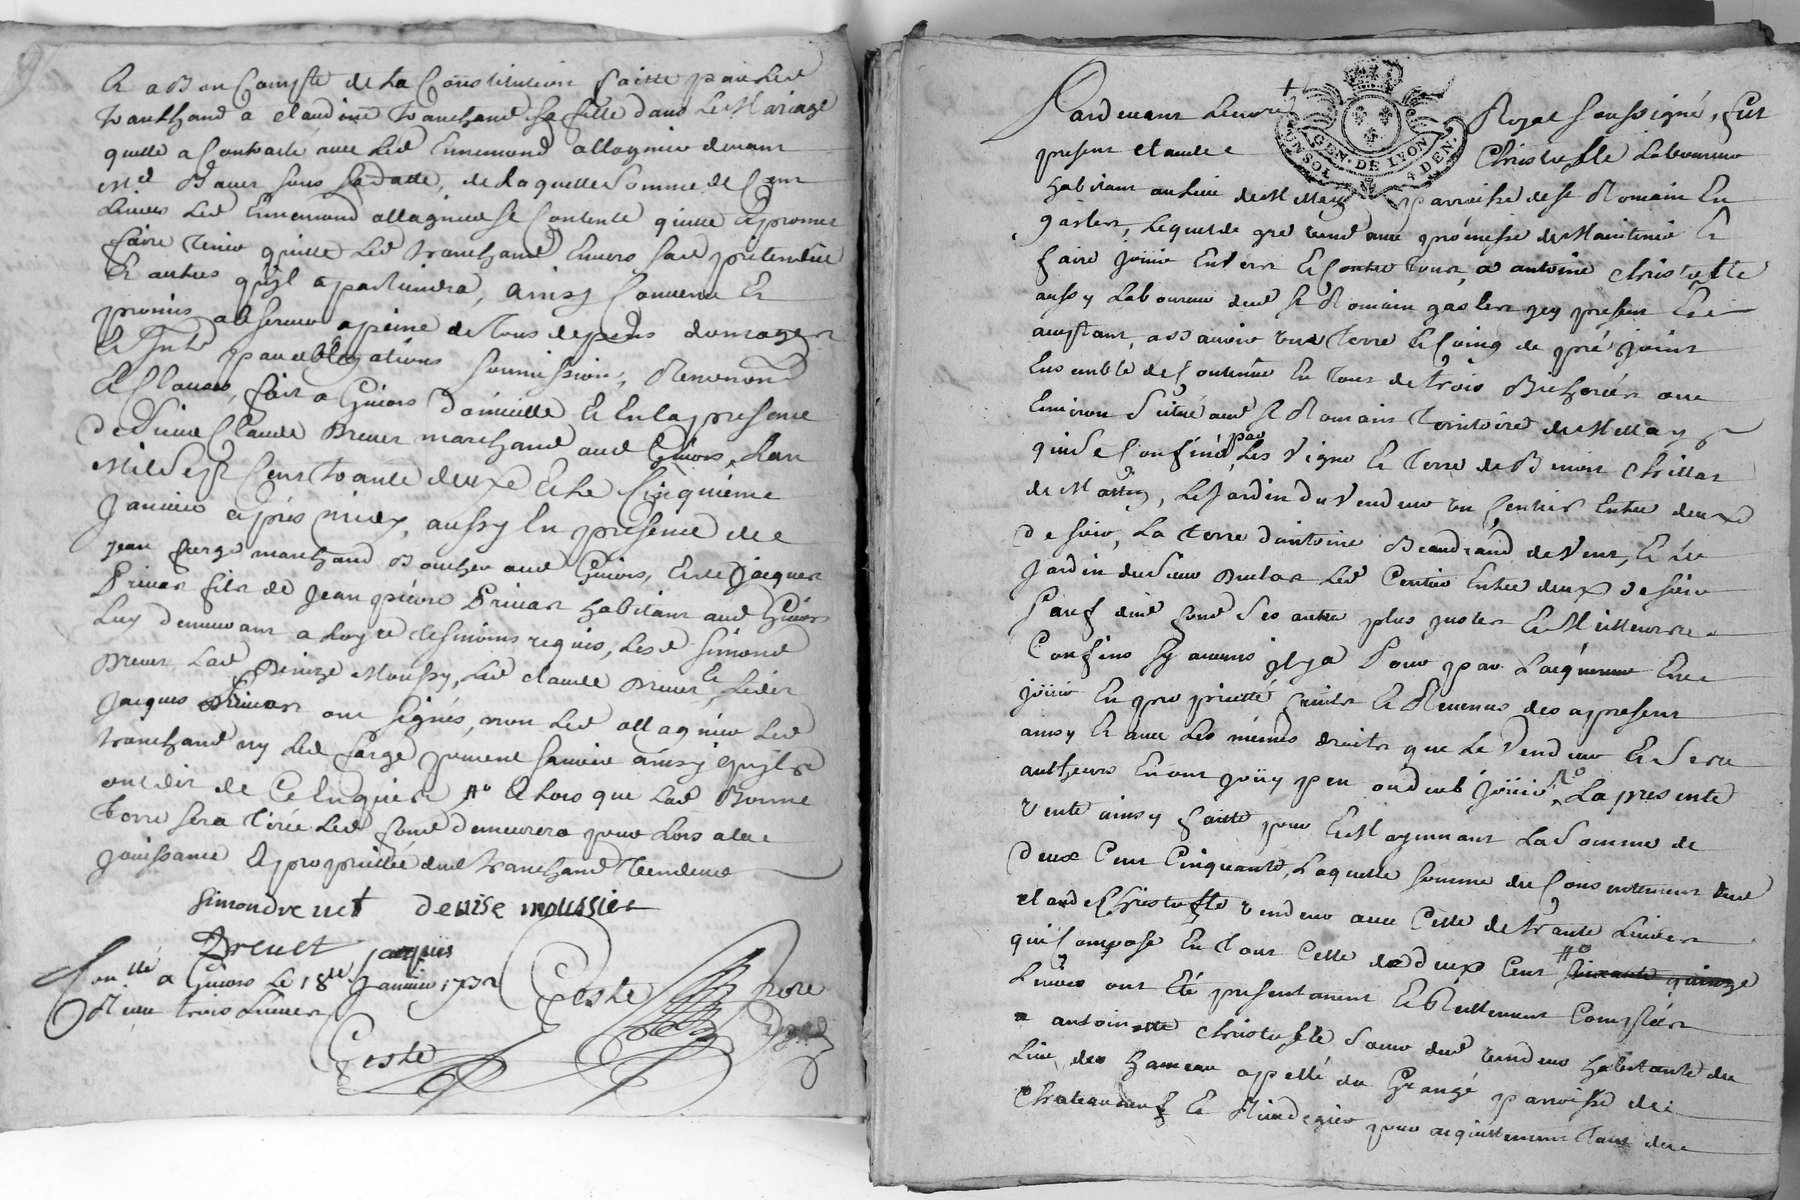 Et a Bon Compte de la Constitution faitte par led
tranchand a claudine tranchand sa fille dans le Mariage
quelle a Contracté avec led Ennemond allognier devant
sous sa datte, de laquelle somme de Cent
Livres led Ennemond allagnier se Contente quitte et promet
faire tenir quitte led tranchand Envers sad pretendue
Et autres qu'jl appartiendra, ainsy Convenu Et
promis observer a peine de tous depens domages
Et Jnts par obligations soumissions, Renonons
Et Clauses, fait a Givors domicille Et En la presence
de Sieur Claude Drevet marchand aud Givors, Lan
Mil Sept Cent trante deux Et le Cinquième
Janvier après midy, aussy En presence de
jean farge marchand Boucher aud Givors, Et de Jacques
Privas fils de jean pierre Privas habitant aud Givors
Luy demeurant a Loyre tesmoins requis, Lesd Simond
Drevet, Lad Denize Moussy, Led claude Drevet, Et Led
jacques Privas ont signés, non Led allagnier Led
tranchand ny Led farge pour ne savoir ainsy qu'jls
ont dit de Ce Enquis Et Lors que Lad Bonne
terre sera tirée Led fond demeurera pour Lors a la
jouissance Et propriettée dud tranchand Vendeur
Simon drevet denise moussier
Drevet jacques
Conllé a Givors le 18e Janvier 1732
Reçu trois Livres
Geste Nore
Geste
Pardevant Le nore Royal soussigné, fut
GEN. DE LYON
4 DEN
present claude Christophle Laboureur
habitant au lieu de Mellay parroisse de st Romain En
gaslers, Lequel de gré vend avec promesse de Maintenir Et
faire jouir Envers Et Contre tous, a antoine christophle
aussy Laboureur dud st Romain gaslers jcy present Et
acceptant, assavoir une Terre Et Coing de pré joint
Ensemble de Contenue En tout de trois Bicherées ou
Environ Situé aud st Romain territoire de Mellay
qui Se Confine par Les Vigne Et Terre de Benoit chillat
de Le Jardin du Vendeur un sentier Entre deux
de soir, La terre dantoine Beaudrand de Vent, Et Le
jardin du Sieur Led Centier Entre deux de soir
Sauf dud fond Ses autres plus justes Et Meilleurs
Confins sy aucuns jl y a Pour par Lacquereur En
jouir En proprietté fruits Et Revenus des apresent
ainsy Et avec Les mêmes droits que Le Vendeur Et Ses
autheurs En ont jouy peu ou deub jouir, La presente
Vente ainsy faitte pour Et Moyennant La somme de
deux Cent Cinquante, Laquelle somme du Consentement dud
claude Christophle vendeur avec Celle de trante Livres
qui Compose En tout Celle de deux Cent
Livres ont Eté presentement Et Reellement Comptées
a antoinette christophle Sœur dud vendeur habitante du
Lieu des hameau appellé du Grangé parroisse de
Chateauneuf Et pour acquittement tant de